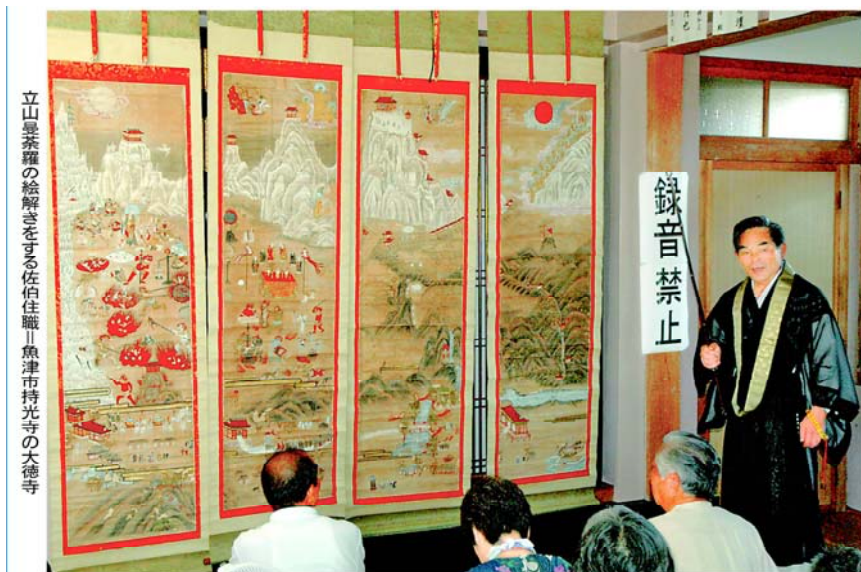 立山曼荼羅の絵解きをする佐伯住職＝魚津市持光寺の大徳寺
録音禁止